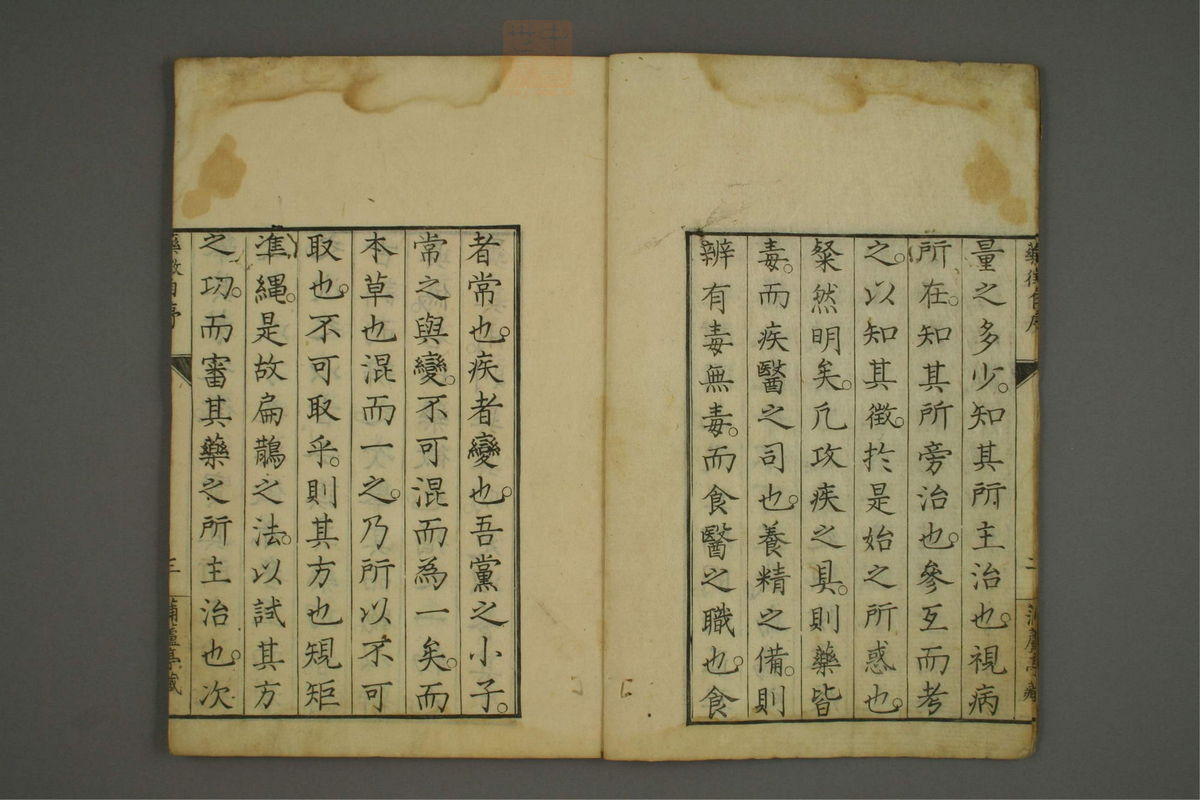 量之多少。知其所主治也。視病
所在。知其所旁治也。參互而考
之。以知其徴。於是始之所惑也。
粲然明矣。凡攻疾之具。則藥皆
毒。而疾醫之司也。養精之備。則
辨有毒無毒。而食醫之職也。食
者常也。疾者變也。吾黨之小子。
常之與變。不可混而為一矣。而
本草也混而一之。乃所以不可
取也。不可取乎。則其方也規矩
準繩。是故扁鵲之法。以試其方
之功。而審其藥之所主治也。次